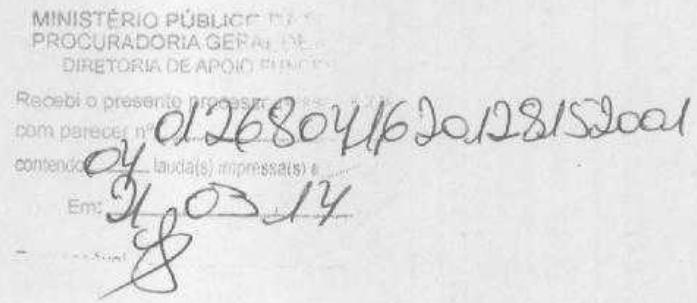 MINISTÉRIO PÚBLICO
PROCURADORIA GERAL DE
DIRETORIA DE APOIO
Recebi o presente processo
com parecer nº 01268041620128152001
contendo 04 lauda(s) impressa(s) e
Em: 21.03.14